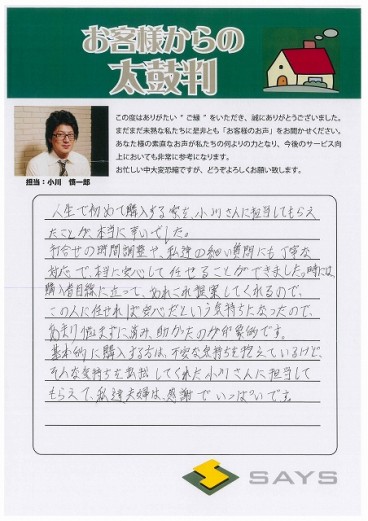 お客様からの
太鼓判
この度はありがたい“ご縁”をいただき、誠にありがとうございました。
まだまだ未熟な私たちに是非とも「お客様のお声」をお聞かせください。
あなた様の素直なお声が私たちの何よりの力となり、今後のサービス向
上においても非常に参考になります。
お忙しい中大変恐縮ですが、どうぞよろしくお願い致します。
担当：小川 慎一郎
人生で初めて購入する家を、小川さんに担当してもらえ
たことが、本当に幸いでした。
打合せの時間調整や、私達の細い質問にも丁寧な
対応で、本当に安心して任せることができました。時には、
購入者目線に立って、あれこれ提案してくれるので、
この人に任せれば安心だという気持ちになったので、
あまり悩まずに済み、助かたのが印象的です。
基本的に購入する方は、不安な気持ちを抱えているけど、
そんな気持ちを払拭してくれた小川さんに担当して
もらえて、私達夫婦は、感謝でいっぱいです。
SAYS